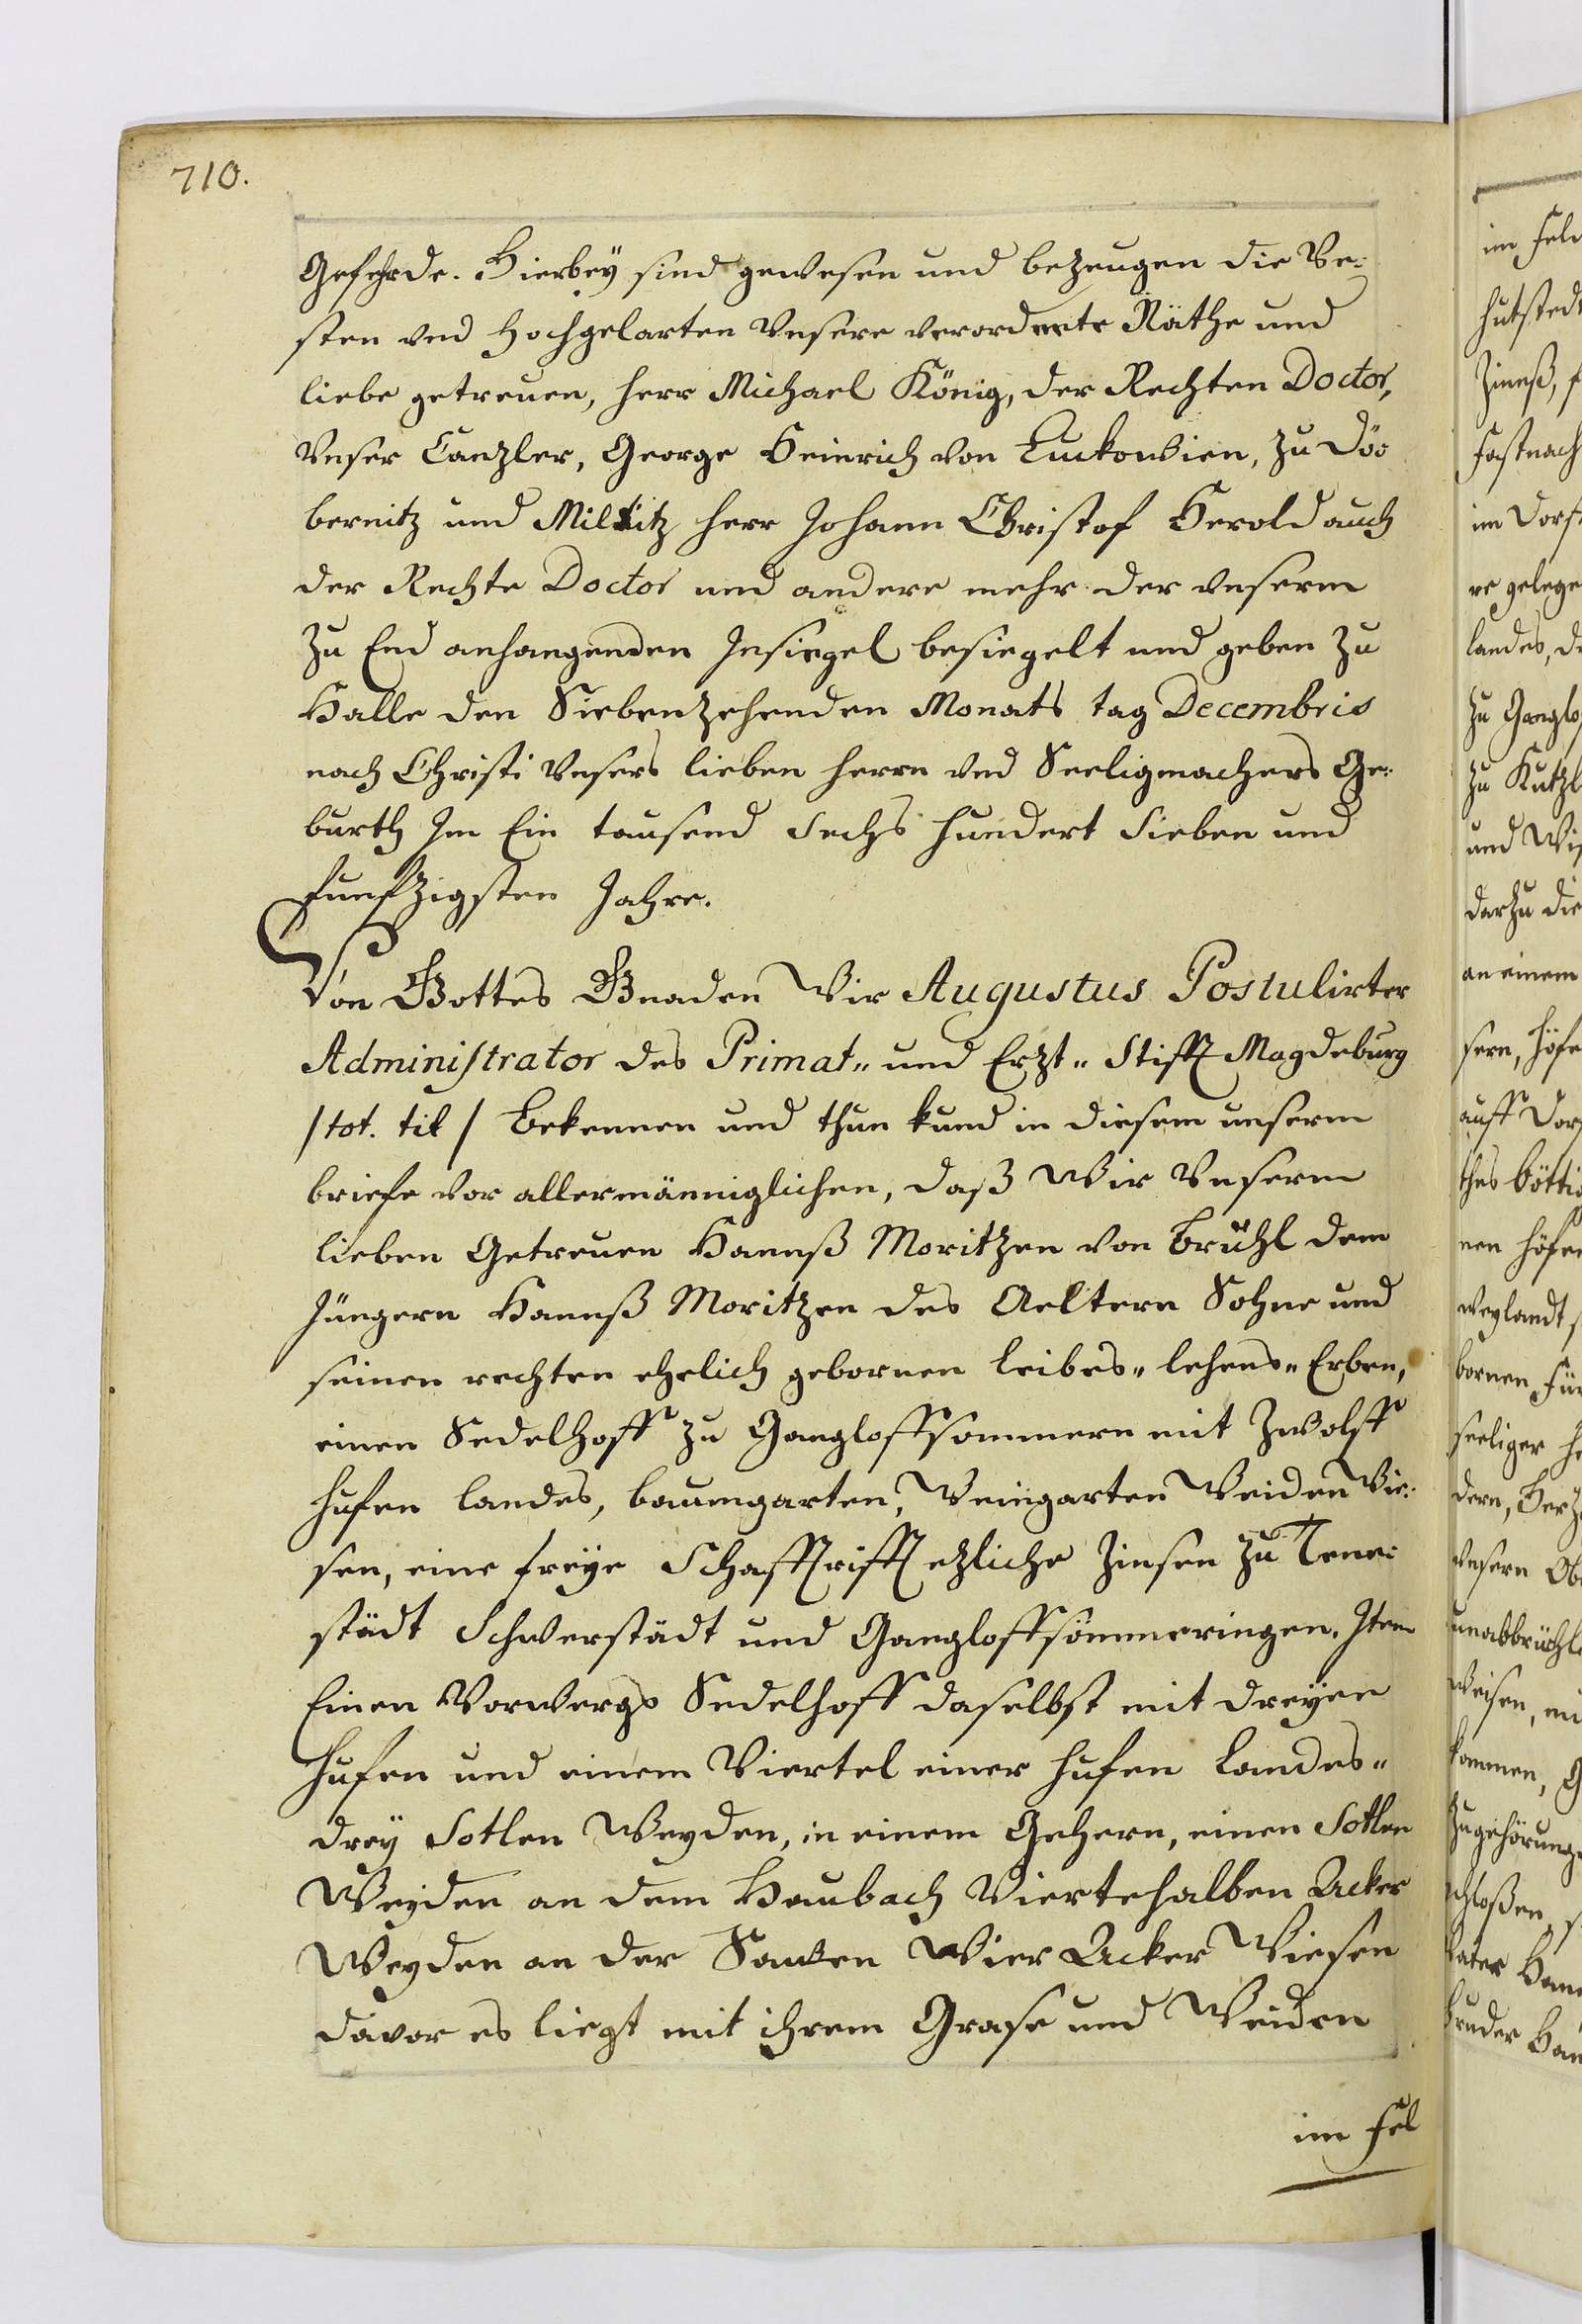 710.
Gefehrde. Hierbey sind gewesen und bezeugen die Ve¬
sten vnd Hochgelarten Vnsere verordente Räthe und
liebe getreuen, Herr Michael König, der Rechten Doctor,
Vnser Canzler, George Heinrich von Luckowien, zu Dö¬
bernitz und Miltitz Herr Johann Christof Herold auch
der Rechte Doctor und andere mehr der vnserm
zu End anhangenden Insiegel besiegelt und geben zu
Halle den Siebenzehenden Monats tag Decembris
nach Christi Vnsers lieben Herrn vnd Seeligmachers Ge¬
burth Im Ein tausend Sechs hundert Sieben und
funfzigsten Jahre.
Von Gottes Gnaden Wir Augustus Postulirter
Administrator des Primat- und Erzt-Stifft Magdeburg
/tot. tit/ Bekennen und thun kund in diesem unserm
briefe vor allermänniglichen, daß Wir Vnserm
lieben Getreuen Hannß Moritzen von Brühl dem
Jüngern Hannß Moritzen des Aeltern Sohne und
seinen rechten ehelich gebornen leibes-lehens-Erben,
einen Sedelhoff zu Gangloffsommern mit Zwolff
hufen landes, baumgarten, Weingarten Weiden Wie¬
sen, eine freye Schafftrifft etzliche Zinsen zu Tene¬
städt Schwerstädt und Gangloffsömmeringen. Item
Einen Vorwergs Sedelhoff daselbst mit dreyen
Hufen und einem Viertel einer Hufen Landes-
drey Sotlen Weyden, in einem Gehern, einen Sotlen
Weyden an dem Haubach Viertehalben Acker
Weyden an der Vier Acker Wiesen
davor es liegt mit ihrem Grase und Weiden
im Fel
im Fel
hutstedt
Zinnß,
Fastnach
im Dorf
re gelege
landes, d
zu Ganglo
zu Kutzl
und Wi
darzu die
an einem
sern, Höfe
auff Dor
thes bötti
nen Höfen
weylandt
bornen Für
seeliger H
dern, Herz
Vnsern Ob
unabbrüchl
Weisen, mi
kommen, G
Zugehörunge
schloßen
Vater Han
bruder Han